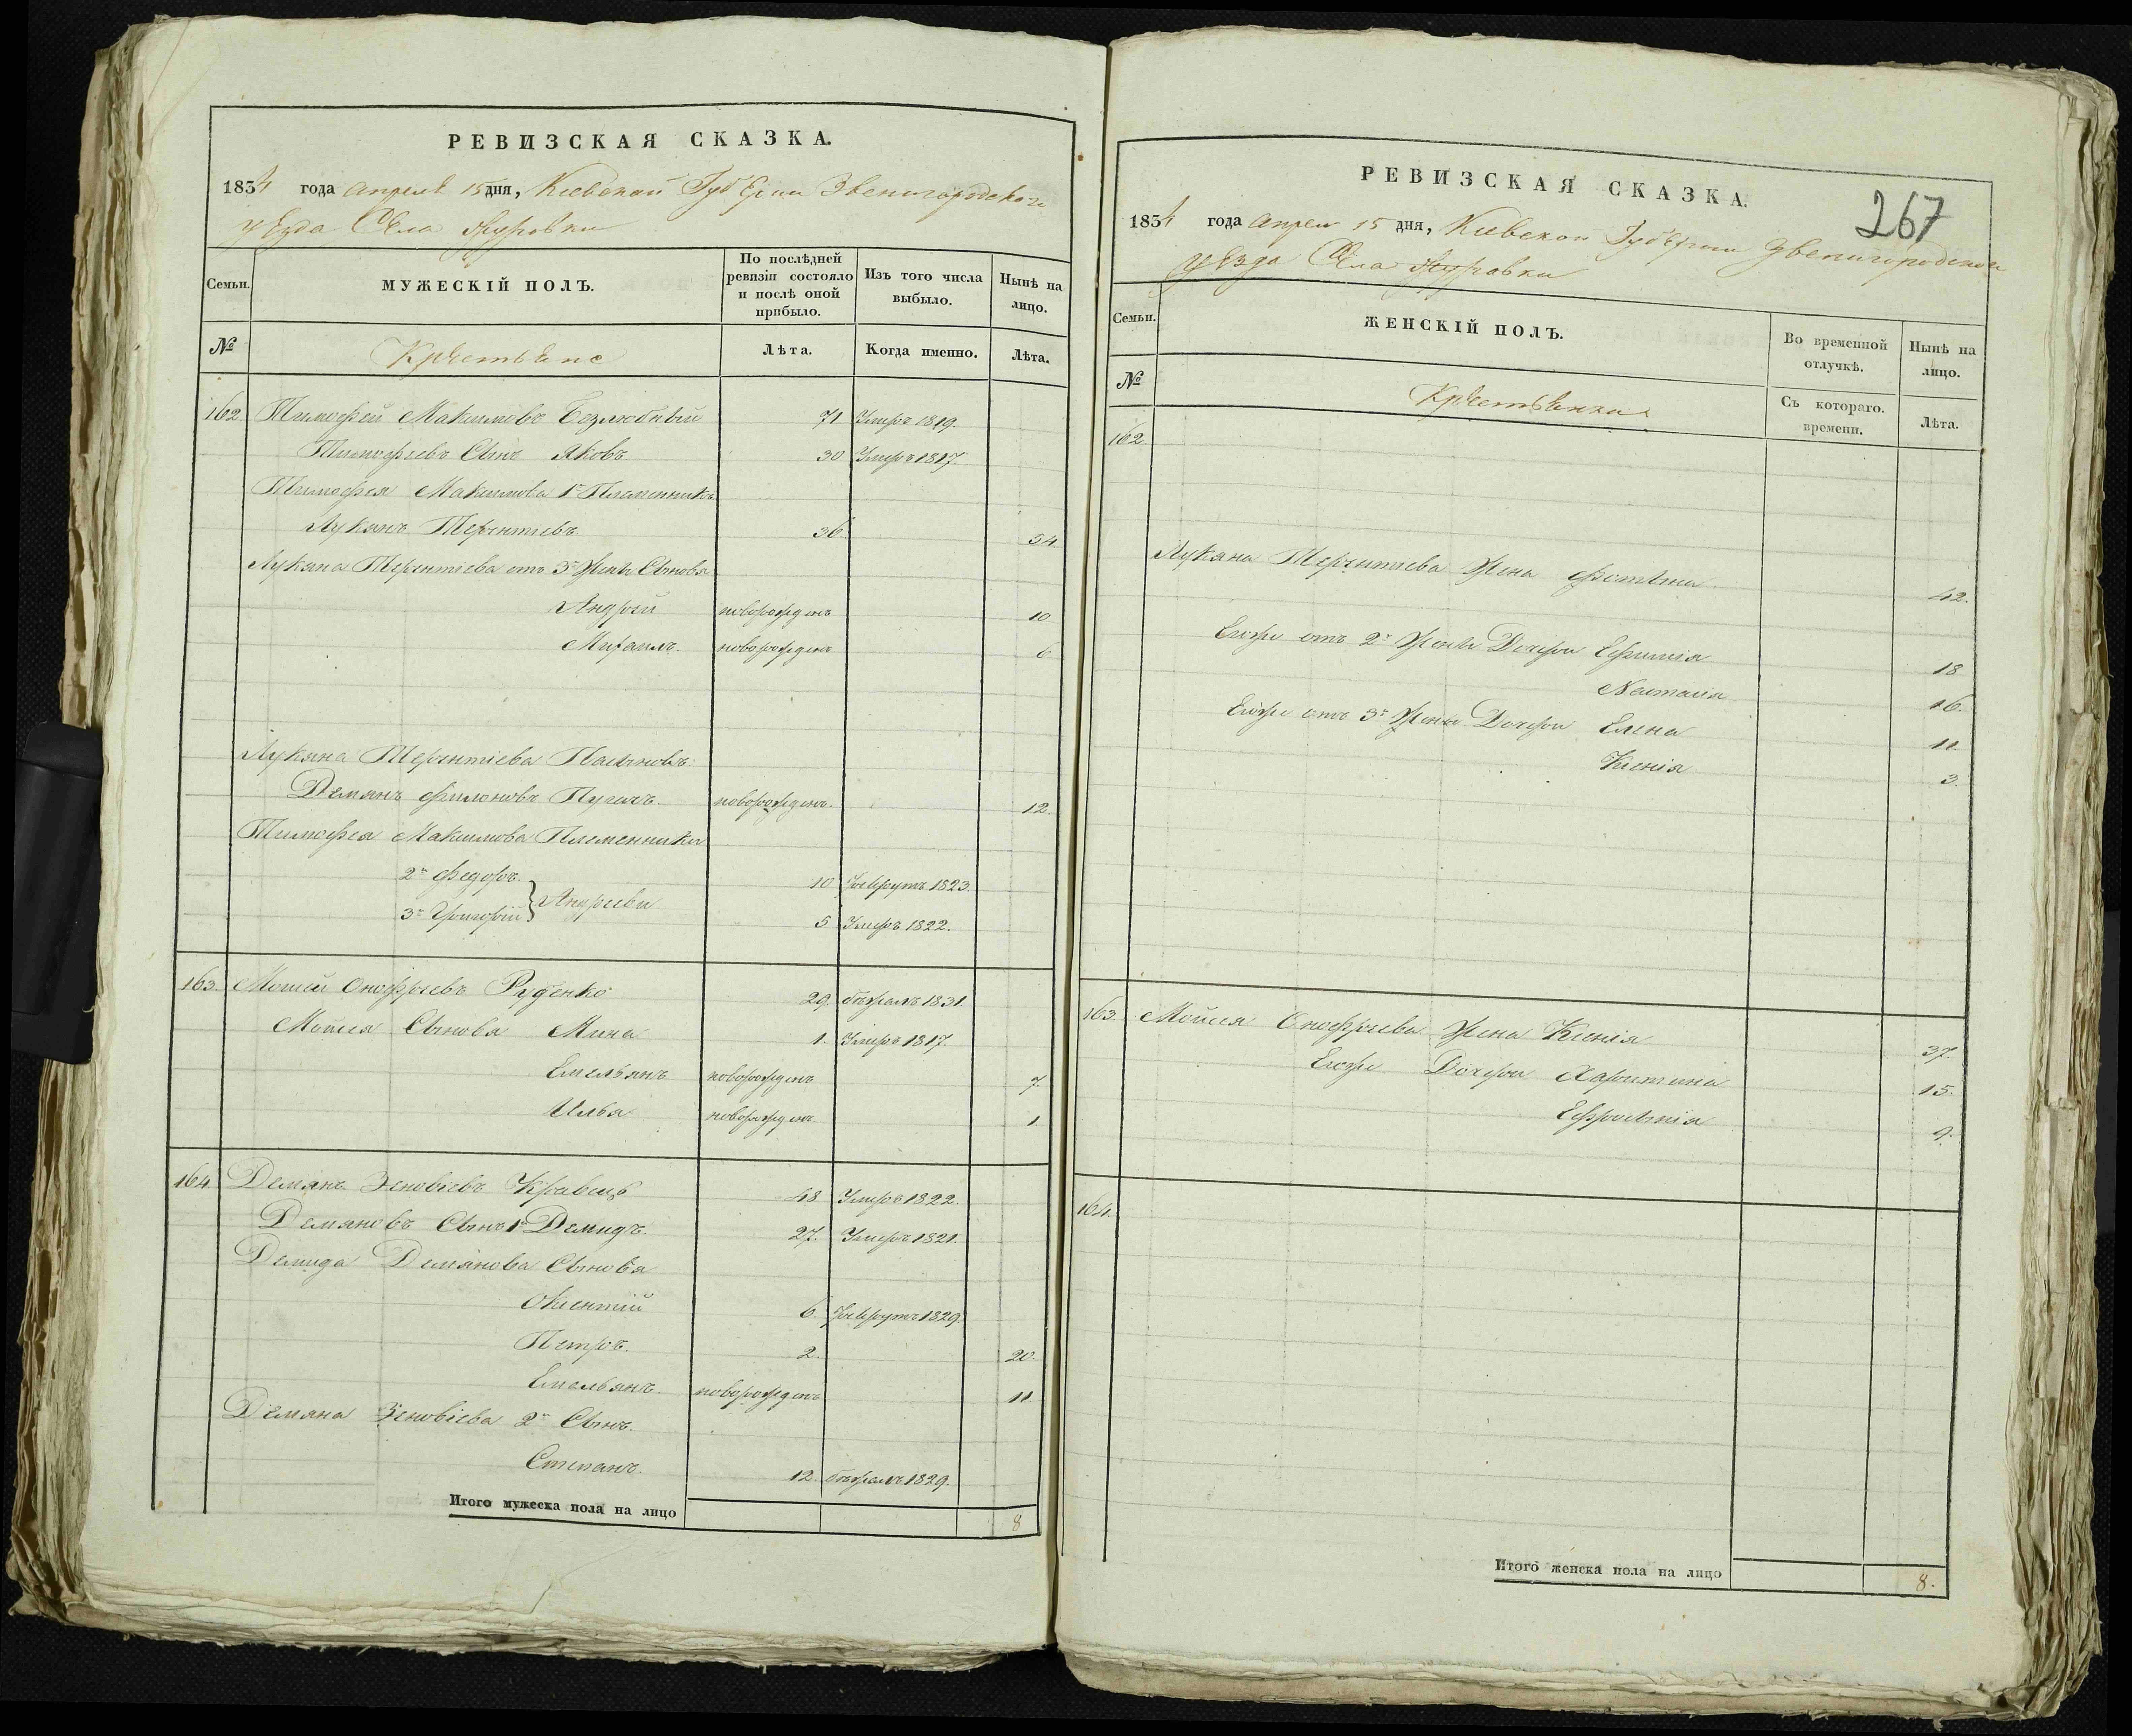 РЕВИЗСКАЯ СКАЗКА.
1834 года апреля 15 дня, Киевской Губернии Звенигородского
уезда Села Журовки
Семьи. МУЖЕСКІЙ ПОЛЪ. По послѣдней ревизіи состояло и послѣ оной прибыло. Изъ того числа выбыло. Нынѣ на лицо.
№ Крестьяне Лѣта. Когда именно. Лѣта.
162. Тимофей Макимовъ Безлюбный 71 Умеръ 1819.
Тимофеевъ Сынъ Яковъ 30 Умеръ 1817.
Тимофея Макимова 1й Племенникъ
Лукянъ Терентіевъ 36. 54.
Лукяна Терентіева отъ 3й Жены Сыновя
Андрей новорожденъ 10
Михаилъ. новорожденъ 6
Лукяна Терентіева Пасынокъ
Демянъ Филоновъ Пугачъ. новорожденъ. 12.
Тимофея Макимова Племенники
2й Федоръ. 10 Уоекрутъ 1823.
3й Григорій } Андреевы 5 Умеръ 1822.
163. Мойсей Онофріевъ Руденко 29. бѣжалъ 1831.
Мойсея Сыновя Мина 1. Умеръ 1817.
Емельянъ новорожденъ 7.
Илья новорожденъ 1
164. Демянъ Зеновіевъ Кравецъ 48 Умеръ 1822.
Демяновъ Сынъ 1й Демидъ. 27. Умеръ 1821.
Демида Демянова Сыновя
Оксентій 6. 1829.
Петръ. 2. 20.
Емельянъ. новорожденъ 11.
Демяна Зеновіева 2й Сынъ.
Степанъ. 12. бѣжалъ 1829.
Итого мужеска пола на лицо 8
267
РЕВИЗСКАЯ СКАЗКА.
1834 года апреля 15 дня, Киевской Губернии Звенигородского
уезда Села Журовки
Семьи. ЖЕНСКІЙ ПОЛЪ. Во временной отлучкѣ. Нынѣ на лицо.
№ Крестьянки Съ котораго. времени. Лѣта.
162.
Лукяна Терентіева Жена Фотина 42.
Егоже отъ 2й Жены Дочери Ефимія 18
Настасія 16.
Егоже отъ 3й Жены Дочери Елена 11.
Ксенія 3.
163 Мойсея Онофріева Жена Ксенія 37.
Егоже Дочери Харитина 15.
Ефросинія 9.
164.
Итого женска пола на лицо 8.